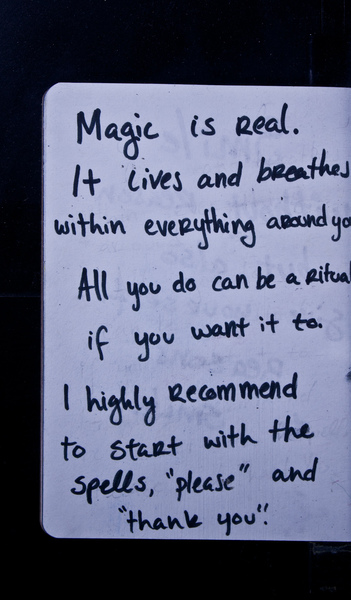 Magic is Real.
It lives and breathes
within everything around yo
All you do can be a Ritual
if you want it to.
I highly Recommend
to start with the
spells, "please" and
"thank you".